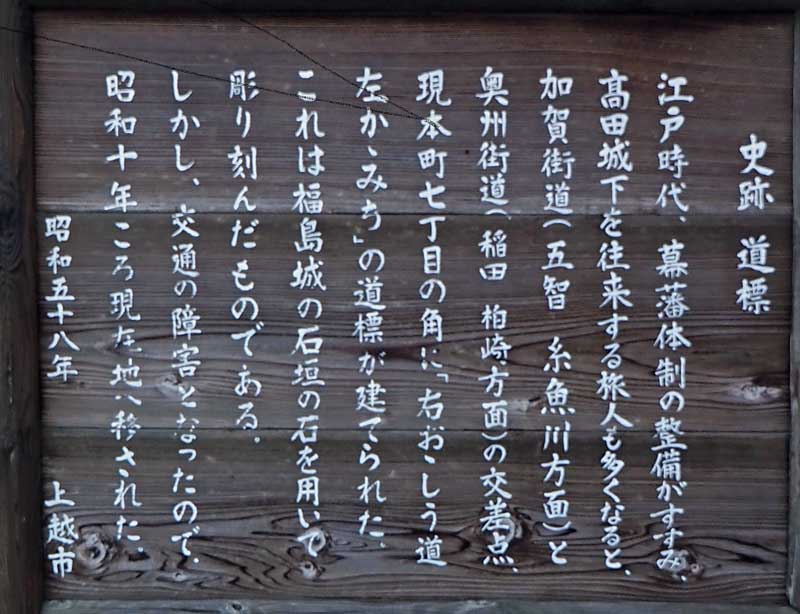 史跡 道標
江戸時代、幕藩体制の整備がすすみ、
髙田城下を往来する旅人も多くなると、
加賀街道(五智 糸魚川方面)と
奥州街道(稲田 柏崎方面)の交差点、
現本町七丁目の角に「右おゝしう道
左かゝみち」の道標が建てられた。
これは福島城の石垣の石を用いて
彫り刻んだものである。
しかし、交通の障害となったので、
昭和十年ころ現在地へ移された。
昭和五十八年 上越市